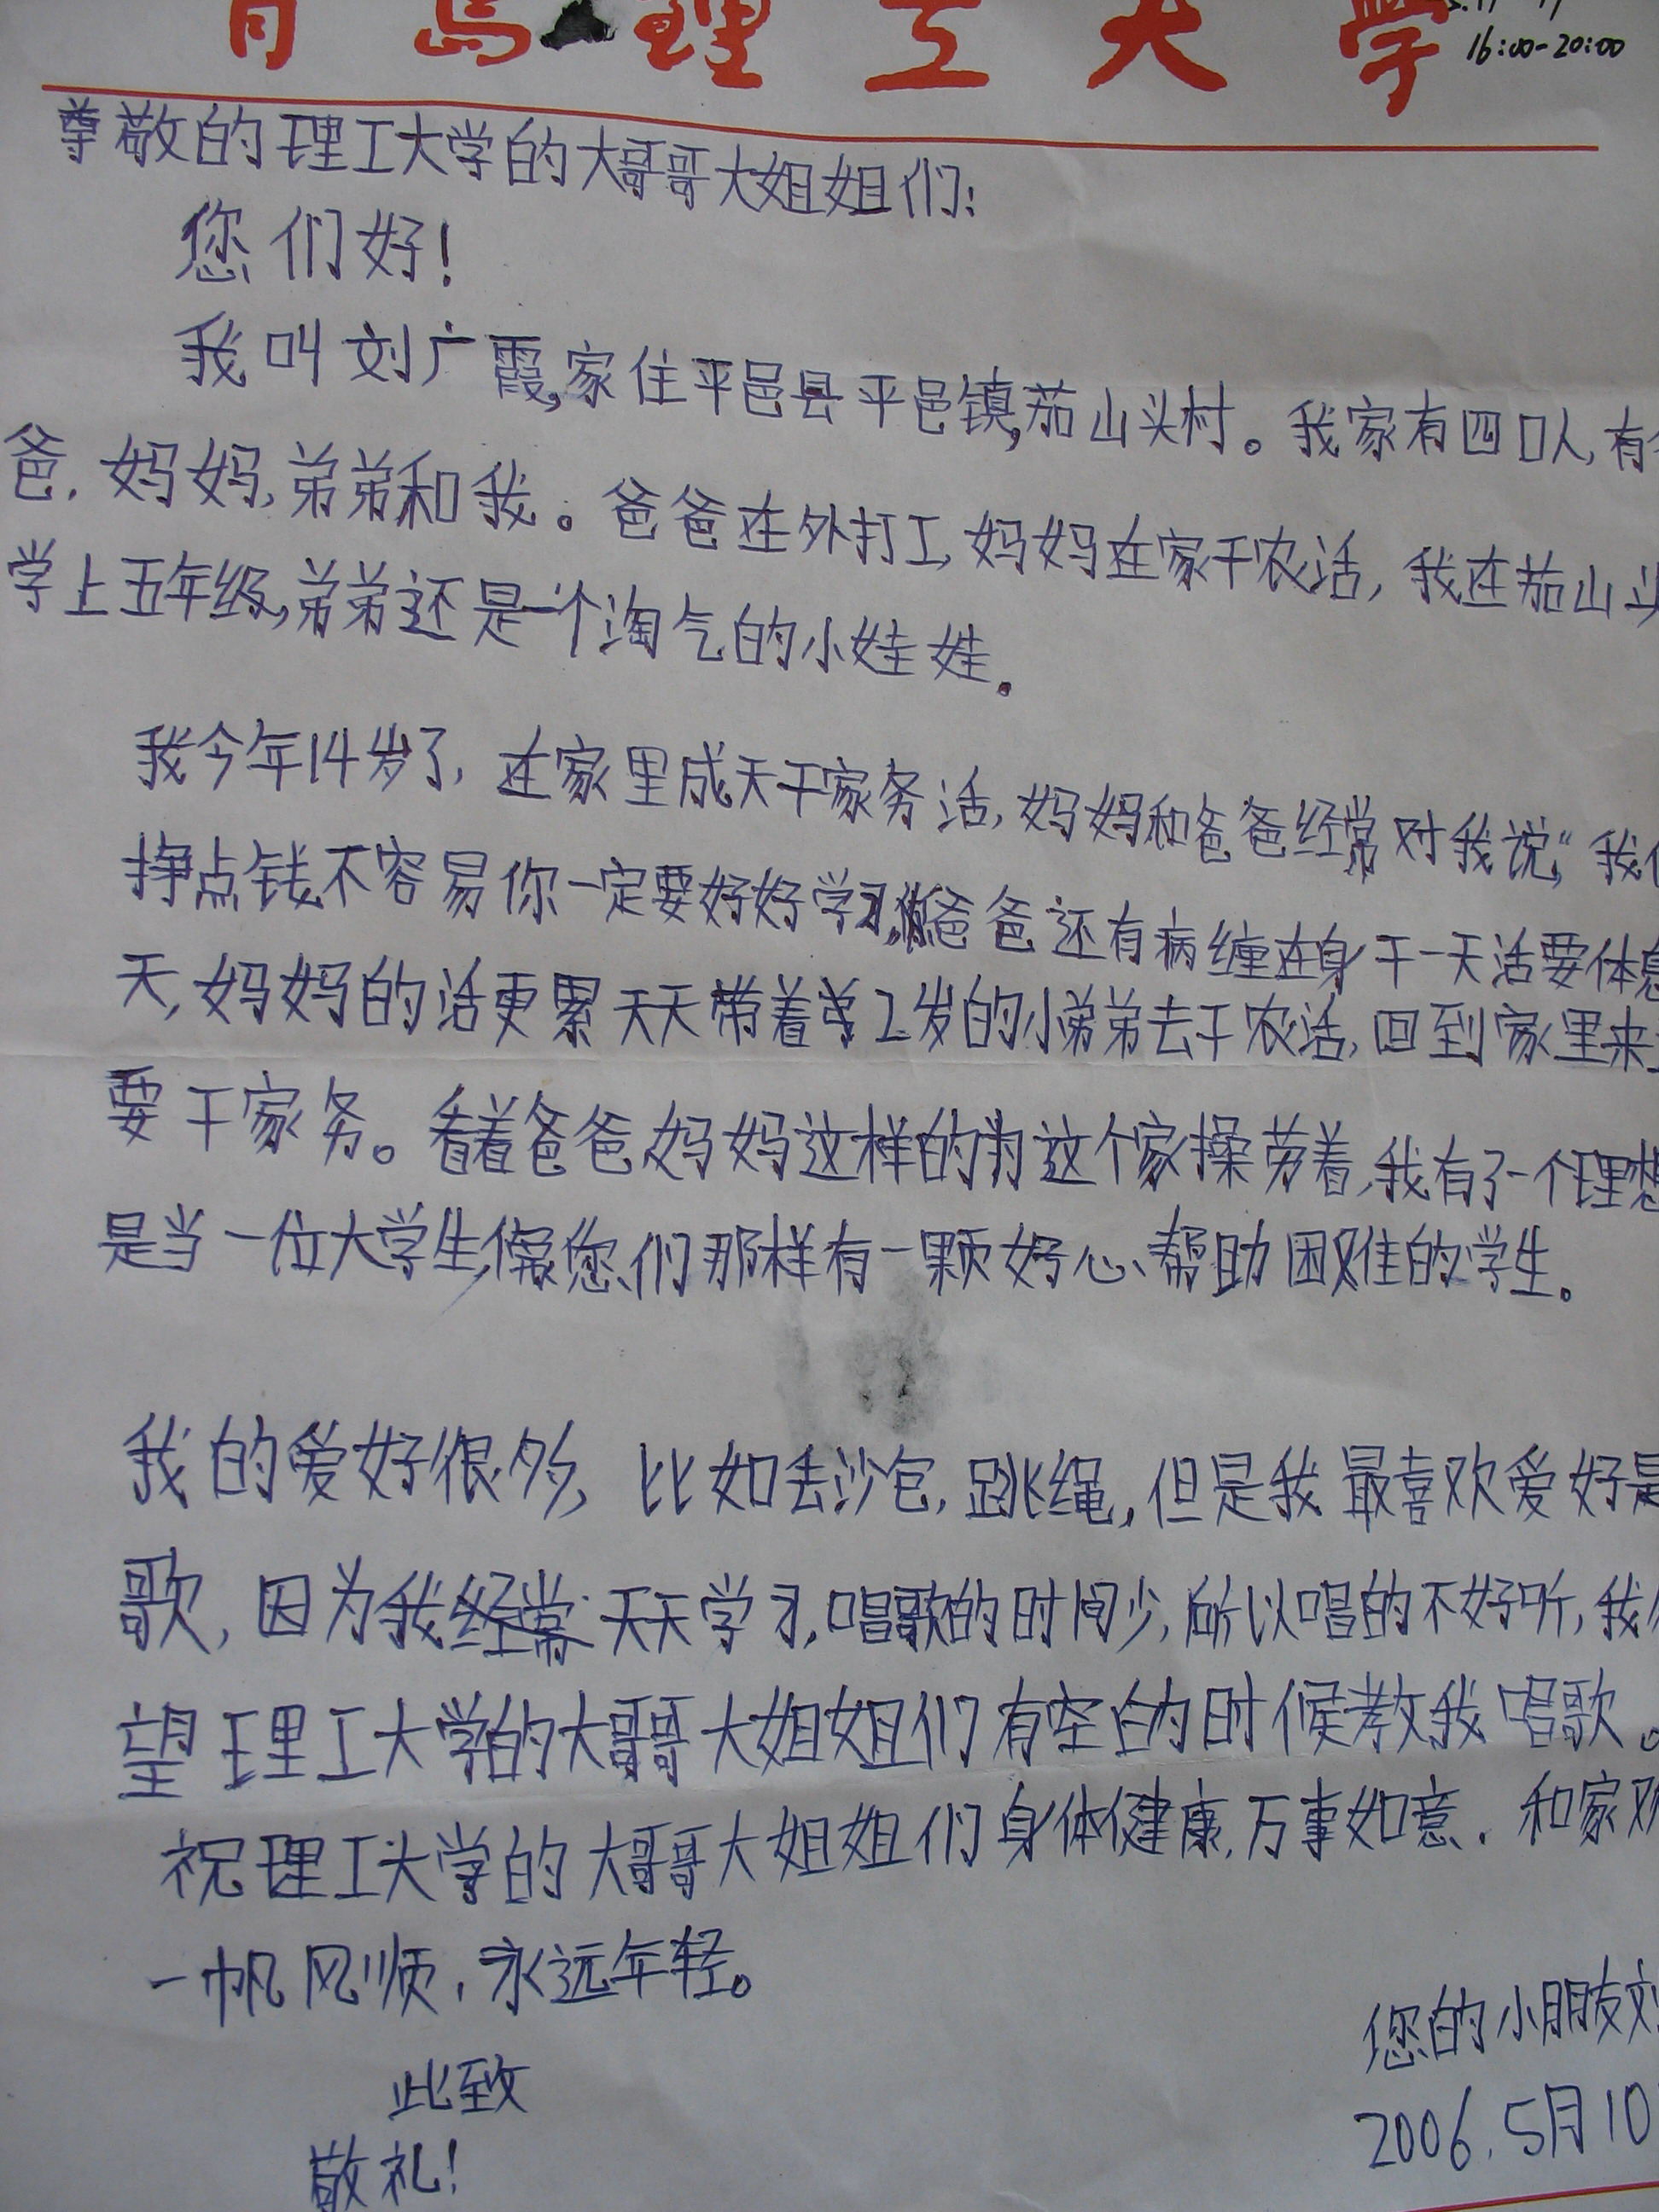 青岛理工大学
16:00-20:00
尊敬的理工大学的大哥哥大姐姐们:
您们好!
我叫刘广霞,家住平邑县平邑镇,茄山头村。我家有四口人,有
爸.妈妈,弟弟和我。爸爸在外打工,妈妈在家干农活,我在茄山头
学上五年级,弟弟还是一个淘气的小娃娃。
我今年14岁了,在家里成天干家务活,妈妈和爸爸经常对我说,“我们
挣点钱不容易你一定要好好学习,你爸爸还有病缠在身干一天活要休息
天,妈妈的活更累天天带着2岁的小弟弟去干农活,回到家里来
要干家务。看着爸爸妈妈这样的为这个家操劳着,我有了一个理想
是当一位大学生,像您们那样有一颗好心、帮助困难的学生。
我的爱好很多,比如丢沙包,跳绳,但是我最喜欢爱好是
歌,因为我经常天天学习,唱歌的时间少,所以唱的不好听,我
望理工大学的大哥哥大姐姐们有空白的时候教我唱歌。
祝理工大学的大哥哥大姐姐们身体健康,万事如意.和家欢
一帆风顺.永远年轻。
您的小朋友刘
此致
2006.5月10
敬礼!